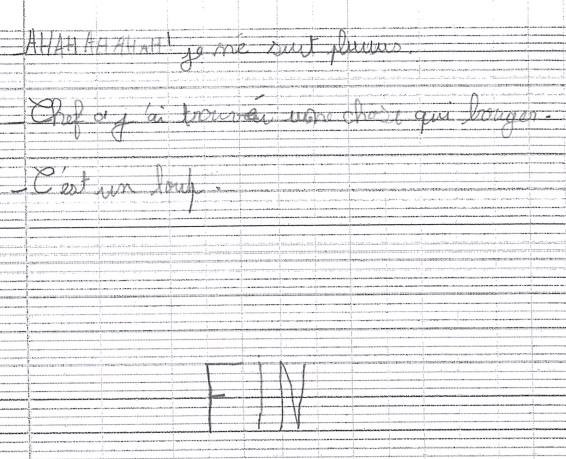 AHAHAHAHAH! je me suit plumus.
- Chef o y 'ai trouvéi une chose qui bouger.
- C'est un loup.
FIN